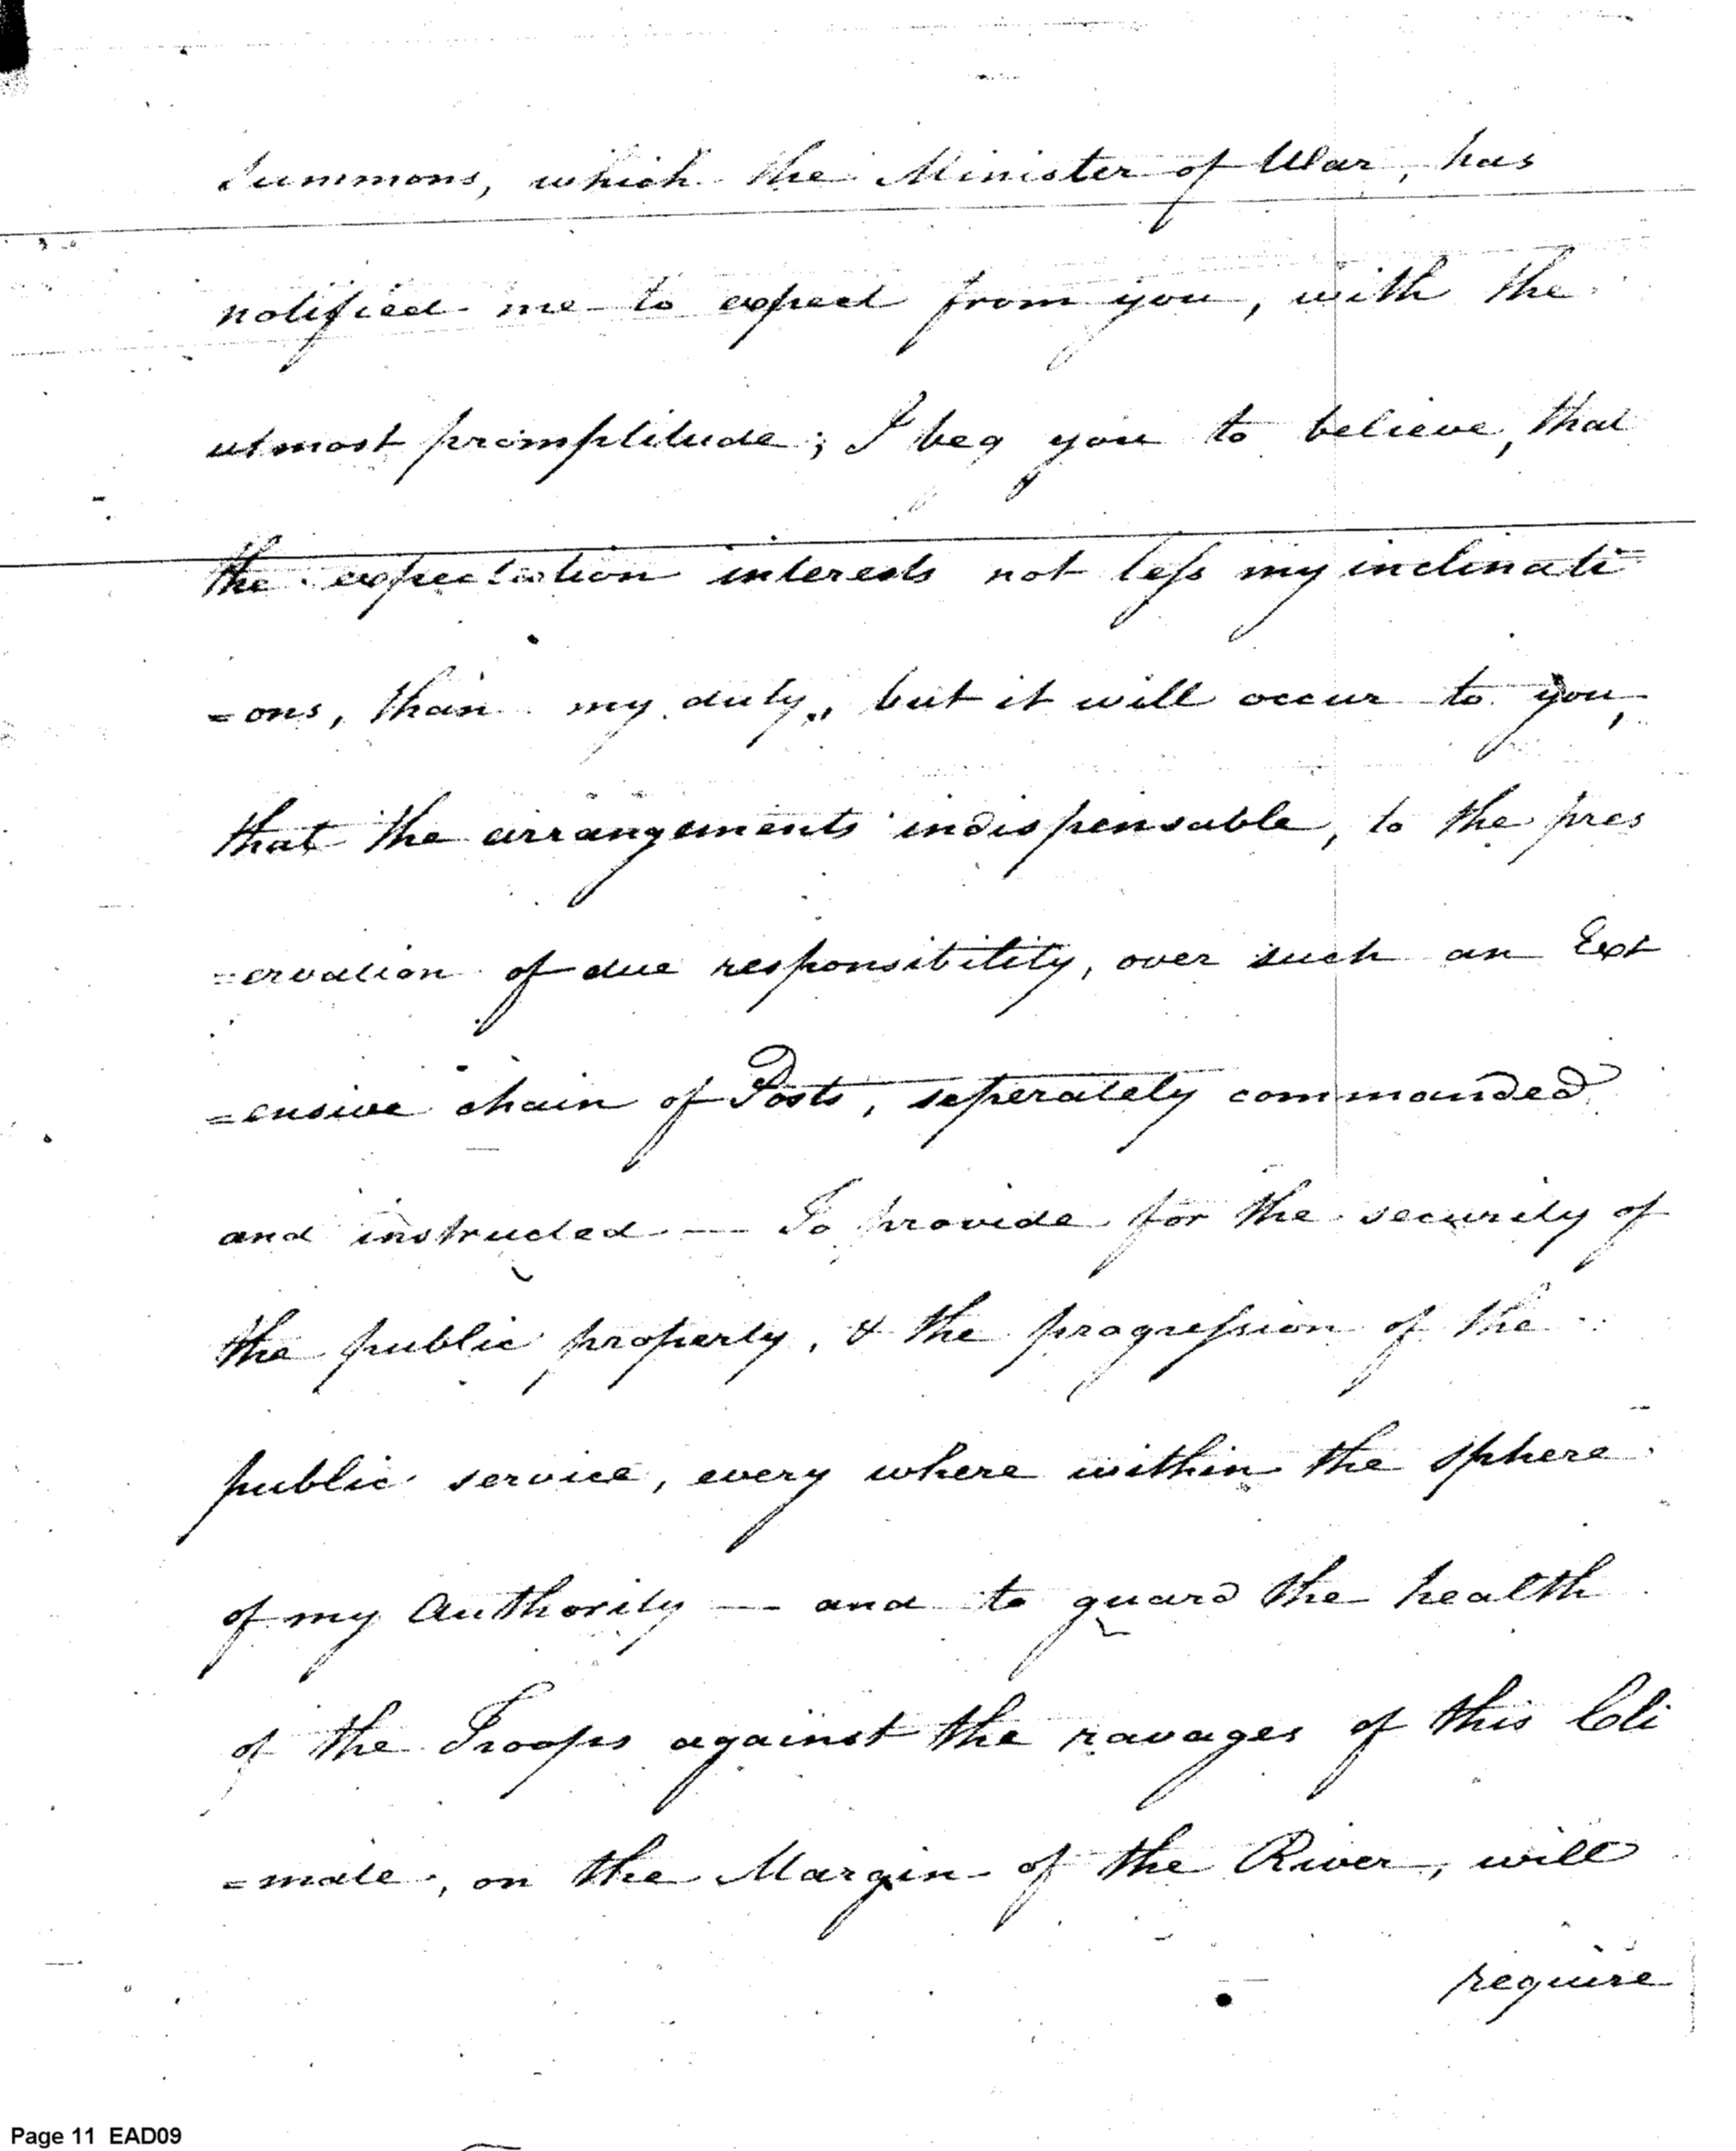 Summons, which the Minister of War, has
notified me to expect from you, with the
utmost promptitude; I beg you to believe, that
the expectation interests not less my inclinati=
=ons, than my duty, but it will occur to you,
that the arrangements indispensable, to the pres
=ervation of due responsibility, over such an Ext
=ensive chain of Posts, seperately commanded
and instructed — To provide for the security of
the public property, & the progression of the
public service, every where within the sphere
of my Authority — and to guard the health
of the Troops against the ravages of this Cli
=mate, on the Margin of the River, will
require
Page 11 EAD09